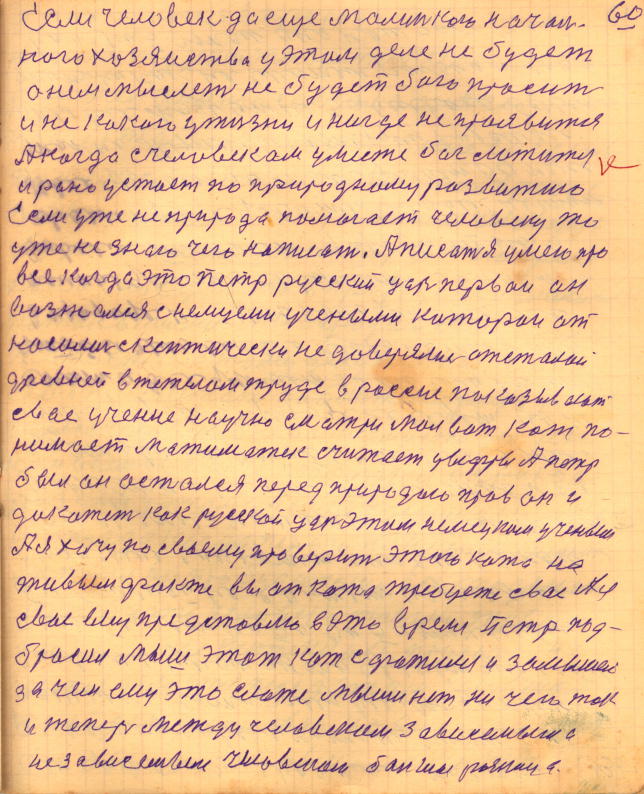 60
Если человек да еще малинкого началь-
ного хозяиства у этом деле не будет
о нем мыслет не будет бога просит
и не какого ужизни и нагде не праявится
А когда счеловекам уместе бог
и рано устает по природному развитию
Если уже не природа помогает человеку то
уже не знаю чего написат. А писат я умею про
все когда это Петр русский цар первои он
возна с немцеми учеными котораи от
скептически не доверялис отсталой
древней в тежолам труде в россие показывают
свае учение научно сматри мол вот кот по-
нимает матиматек считает цыфры А петр
был он остался перед природою прав он и
докажет как русской цар этом немецком ученым
А я хочу по своему проверит этого кота на
живым факте вы от кота требуете свае А я
свае ему представлю в это время Петр под-
бросил мыш этот кот
за чем ему это мыши нет ни чего так
и тепер между человекам зависемым а
не зависемым человеком разница.